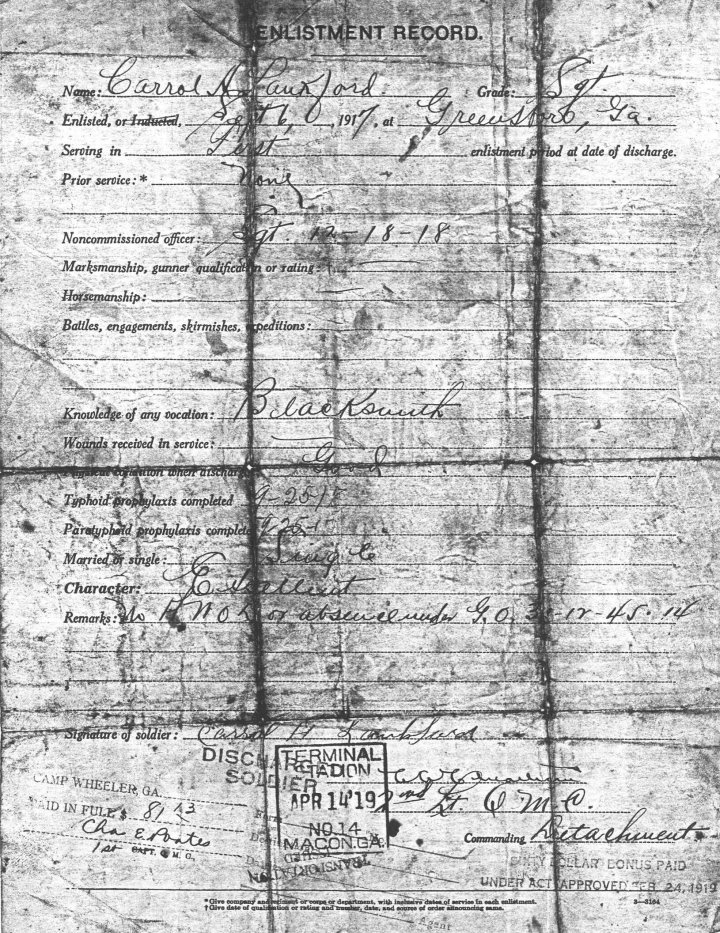 ENLISTMENT RECORD.
Name: Carrol A. Lankford Grade: Sgt.
Enlisted, or Inducted, Sept 6, 1917, at Greensboro, Ga.
Serving in First enlistment period at date of discharge.
Prior service: * None
Noncommissioned officer: Sgt. 12-18-18
Marksmanship, gunner qualification or rating: †
Horsemanship:
Battles, engagements, skirmishes, expeditions:
Knowledge of any vocation: Blacksmith
Wounds received in service:
Physical condition when discharged: Good
Typhoid prophylaxis completed 9-25-17
Paratyphoid prophylaxis completed 9-25-17
Married or single: Single
Character: Excellent
Remarks: No A.W.O.L. or absence under G.O. 31-12-45-14
Signature of soldier: Carrol A Lankford
DISCHARGED
SOLDIER
TERMINAL
STATION
APR 14'19
NO. 14
MACON.GA.
TRANSPORTATION
CAMP WHEELER, GA.
PAID IN FULL $ 81
Chas E. Poates
1st CAPT. Q. M. C.
2nd Lt. Q M C.
Commanding Detachment
SIXTY DOLLAR BONUS PAID
UNDER ACT APPROVED FEB. 24, 1919
* Give company and regiment or corps or department, with inclusive dates of service in each enlistment. 3—3164
† Give date of qualification or rating and number, date, and source of order announcing same.
Agent